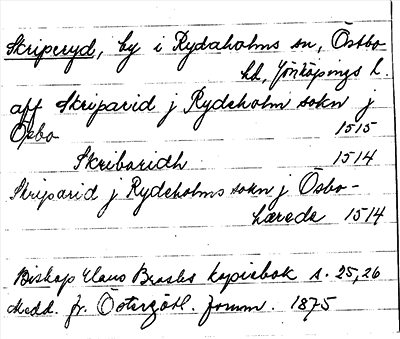 Skriperyd, by i Rydaholms sn, Östbo
hd, Jönköpings l.
aff Skriparid j Rydeholm sokn j
Ösbo 1515
Skribaridh 1514
Skriparid j Rydeholms sokn j Ösbo-
hærede 1514
Biskop Hans Brasks kopiebok s. 25, 26
Medd. fr. Östergötl. fornm. 1875